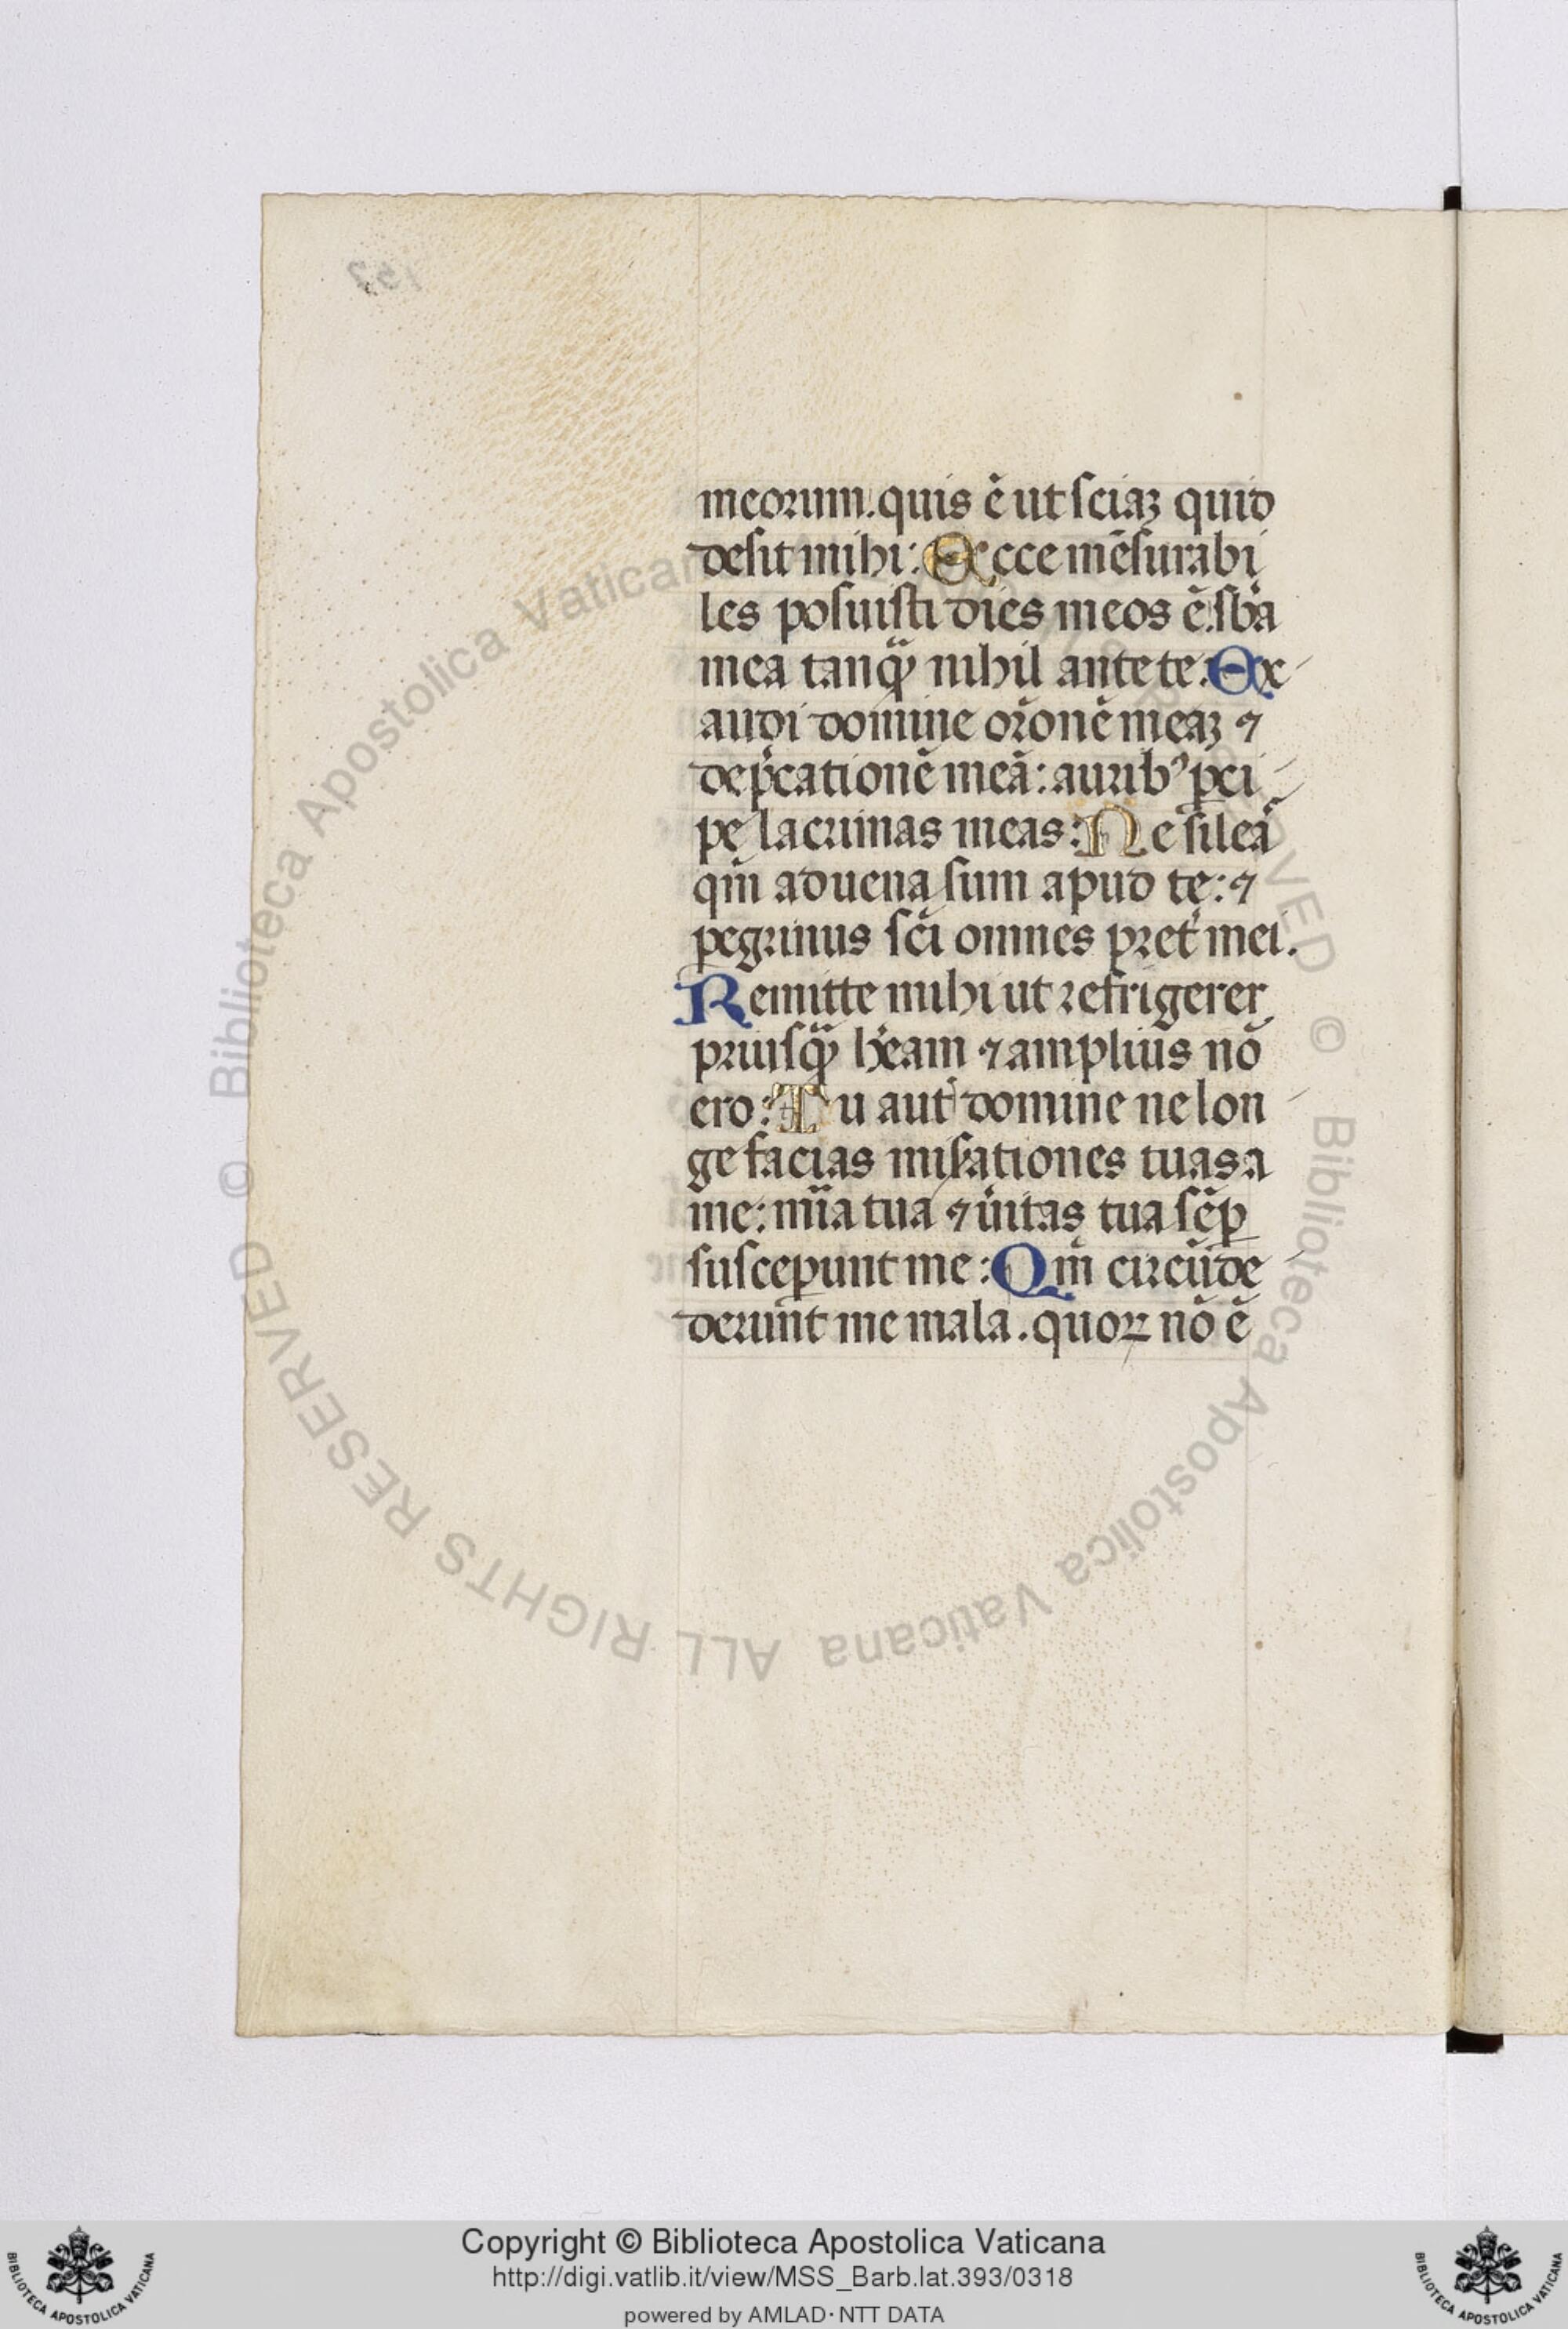 meorum. quis ē ut sciaꝫ quid
desit mihi: Ecce mēsurabi
les posuisti dies meos ē. sba
mea tanq̄ nihil ante te: Ex
audi domine orōnē meaꝫ ⁊
dep̄catione meā: aurib⁹ ꝑci
pe lacrimas meas: Ne sileā
qm̄ aduena sum apud te: ⁊
ꝑegrinus sc̄i omnes pret̄ mei.
Remitte mihi ut refrigerer
priusq̄ h̄eam ⁊ amplius nō
ero: Tu aut̄ domine ne lon
ge facias misationes tuas a
me: mīa tua ⁊ ūitas tua sēꝑ
susceꝑunt me: Qm̄ circūde
derunt me mala. quoꝝ nō ē
Biblioteca Apostolica Vaticana
ALL RIGHTS RESERVED © Biblioteca Apostolica Vaticana
© Biblioteca Apostolica Vaticana
Copyright © Biblioteca Apostolica Vaticana
http://digi.vatlib.it/view/MSS_Barb.lat.393/0318
powered by AMLAD · NTT DATA